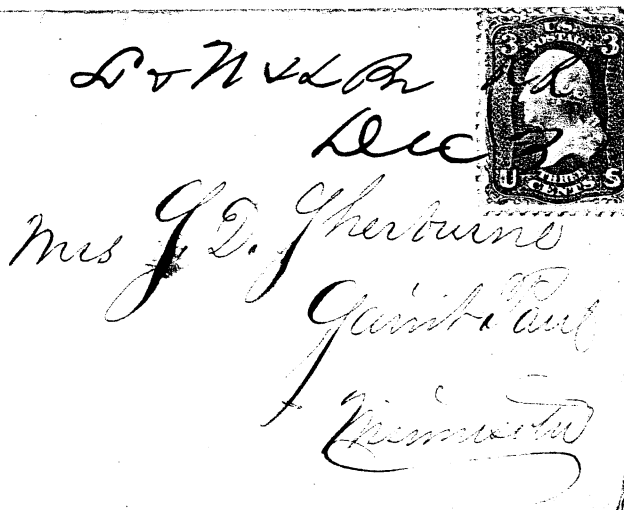 L & N & L Br R.R.
Dec 3
3 U.S. POSTAGE 3
U THREE CENTS S
Mrs J. D. Sherburne
Saint Paul
Minnesota